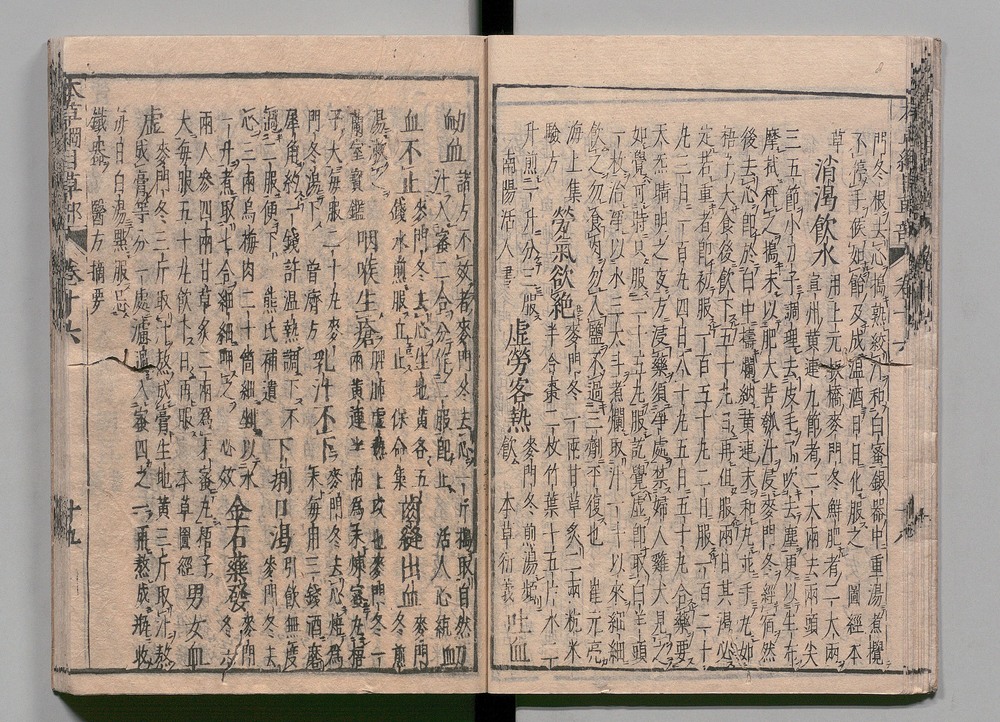 門冬根去心搗熟絞汁和白蜜銀器中重湯煮攪
不停手候如飴乃成温酒日日化服之 圖經本
草 消渇飲水 用上元板橋麥門冬鮮肥者二大兩
宣州黄連九節者二大兩去兩頭尖
三五節小刀子調理去皮毛了吹去塵更以生布
摩拭秤之搗末以肥大苦瓠汁浸麥門冬經宿然
後去心即於臼中搗爛納黄連末和丸並手丸如
梧子大食後飲下五十丸日再但服兩日其渇必
定若重者即初服一百五十丸二日服一百二十
丸三日一百丸四日八十丸五日五十丸合藥要
天氣晴明之夜方浸藥須淨處禁婦人雞犬見之
如覺可時只服二十五丸服訖覺虚即取白羊頭
一枚治淨以水三大斗煮爛取汁一斗以來細細
飲之勿食肉勿入鹽不過三劑平復也 崔元亮
海上集 勞氣欲絶 麥門冬一兩甘草炙二兩秔米
半合棗二枚竹葉十五片水二
升煎一升分三服
南陽活人書 虚勞客熱 麥門冬煎湯頻
飲 本草衍義 吐血
衄血 諸方不效者麥門冬去心一斤搗取自然
汁入蜜二合分作二服即止 活人心統 衄
血不止 麥門冬去心生地黄各五
錢水煎服立止 保命集 齒縫出血 麥門
冬煎
湯漱之
蘭室寶鑑 咽喉生瘡 脾肺虚熱上攻也麥門冬一
兩黄連半兩爲末煉蜜丸梧
子大每服二十丸麥
門冬湯下 普濟方 乳汁不下 麥門冬去心焙爲
末每用三錢酒磨
犀角約一錢許温熱調下不
過二服便下 熊氏補遺 下痢口渇 引飲無度
麥門冬去
心三兩烏梅肉二十箇細剉以水
一升煮取七合細細呷之 必效 金石藥發 麥門
冬六
兩人參四兩甘草炙二兩爲末蜜丸梧子
大每服五十丸飲下日再服 本草圖經 男女血
虚 麥門冬三斤取汁熬成膏生地黄三斤取汁熬
成膏等分一處濾過入蜜四之一再熬成瓶收
每日白湯點服忌
鐵器 醫方摘要